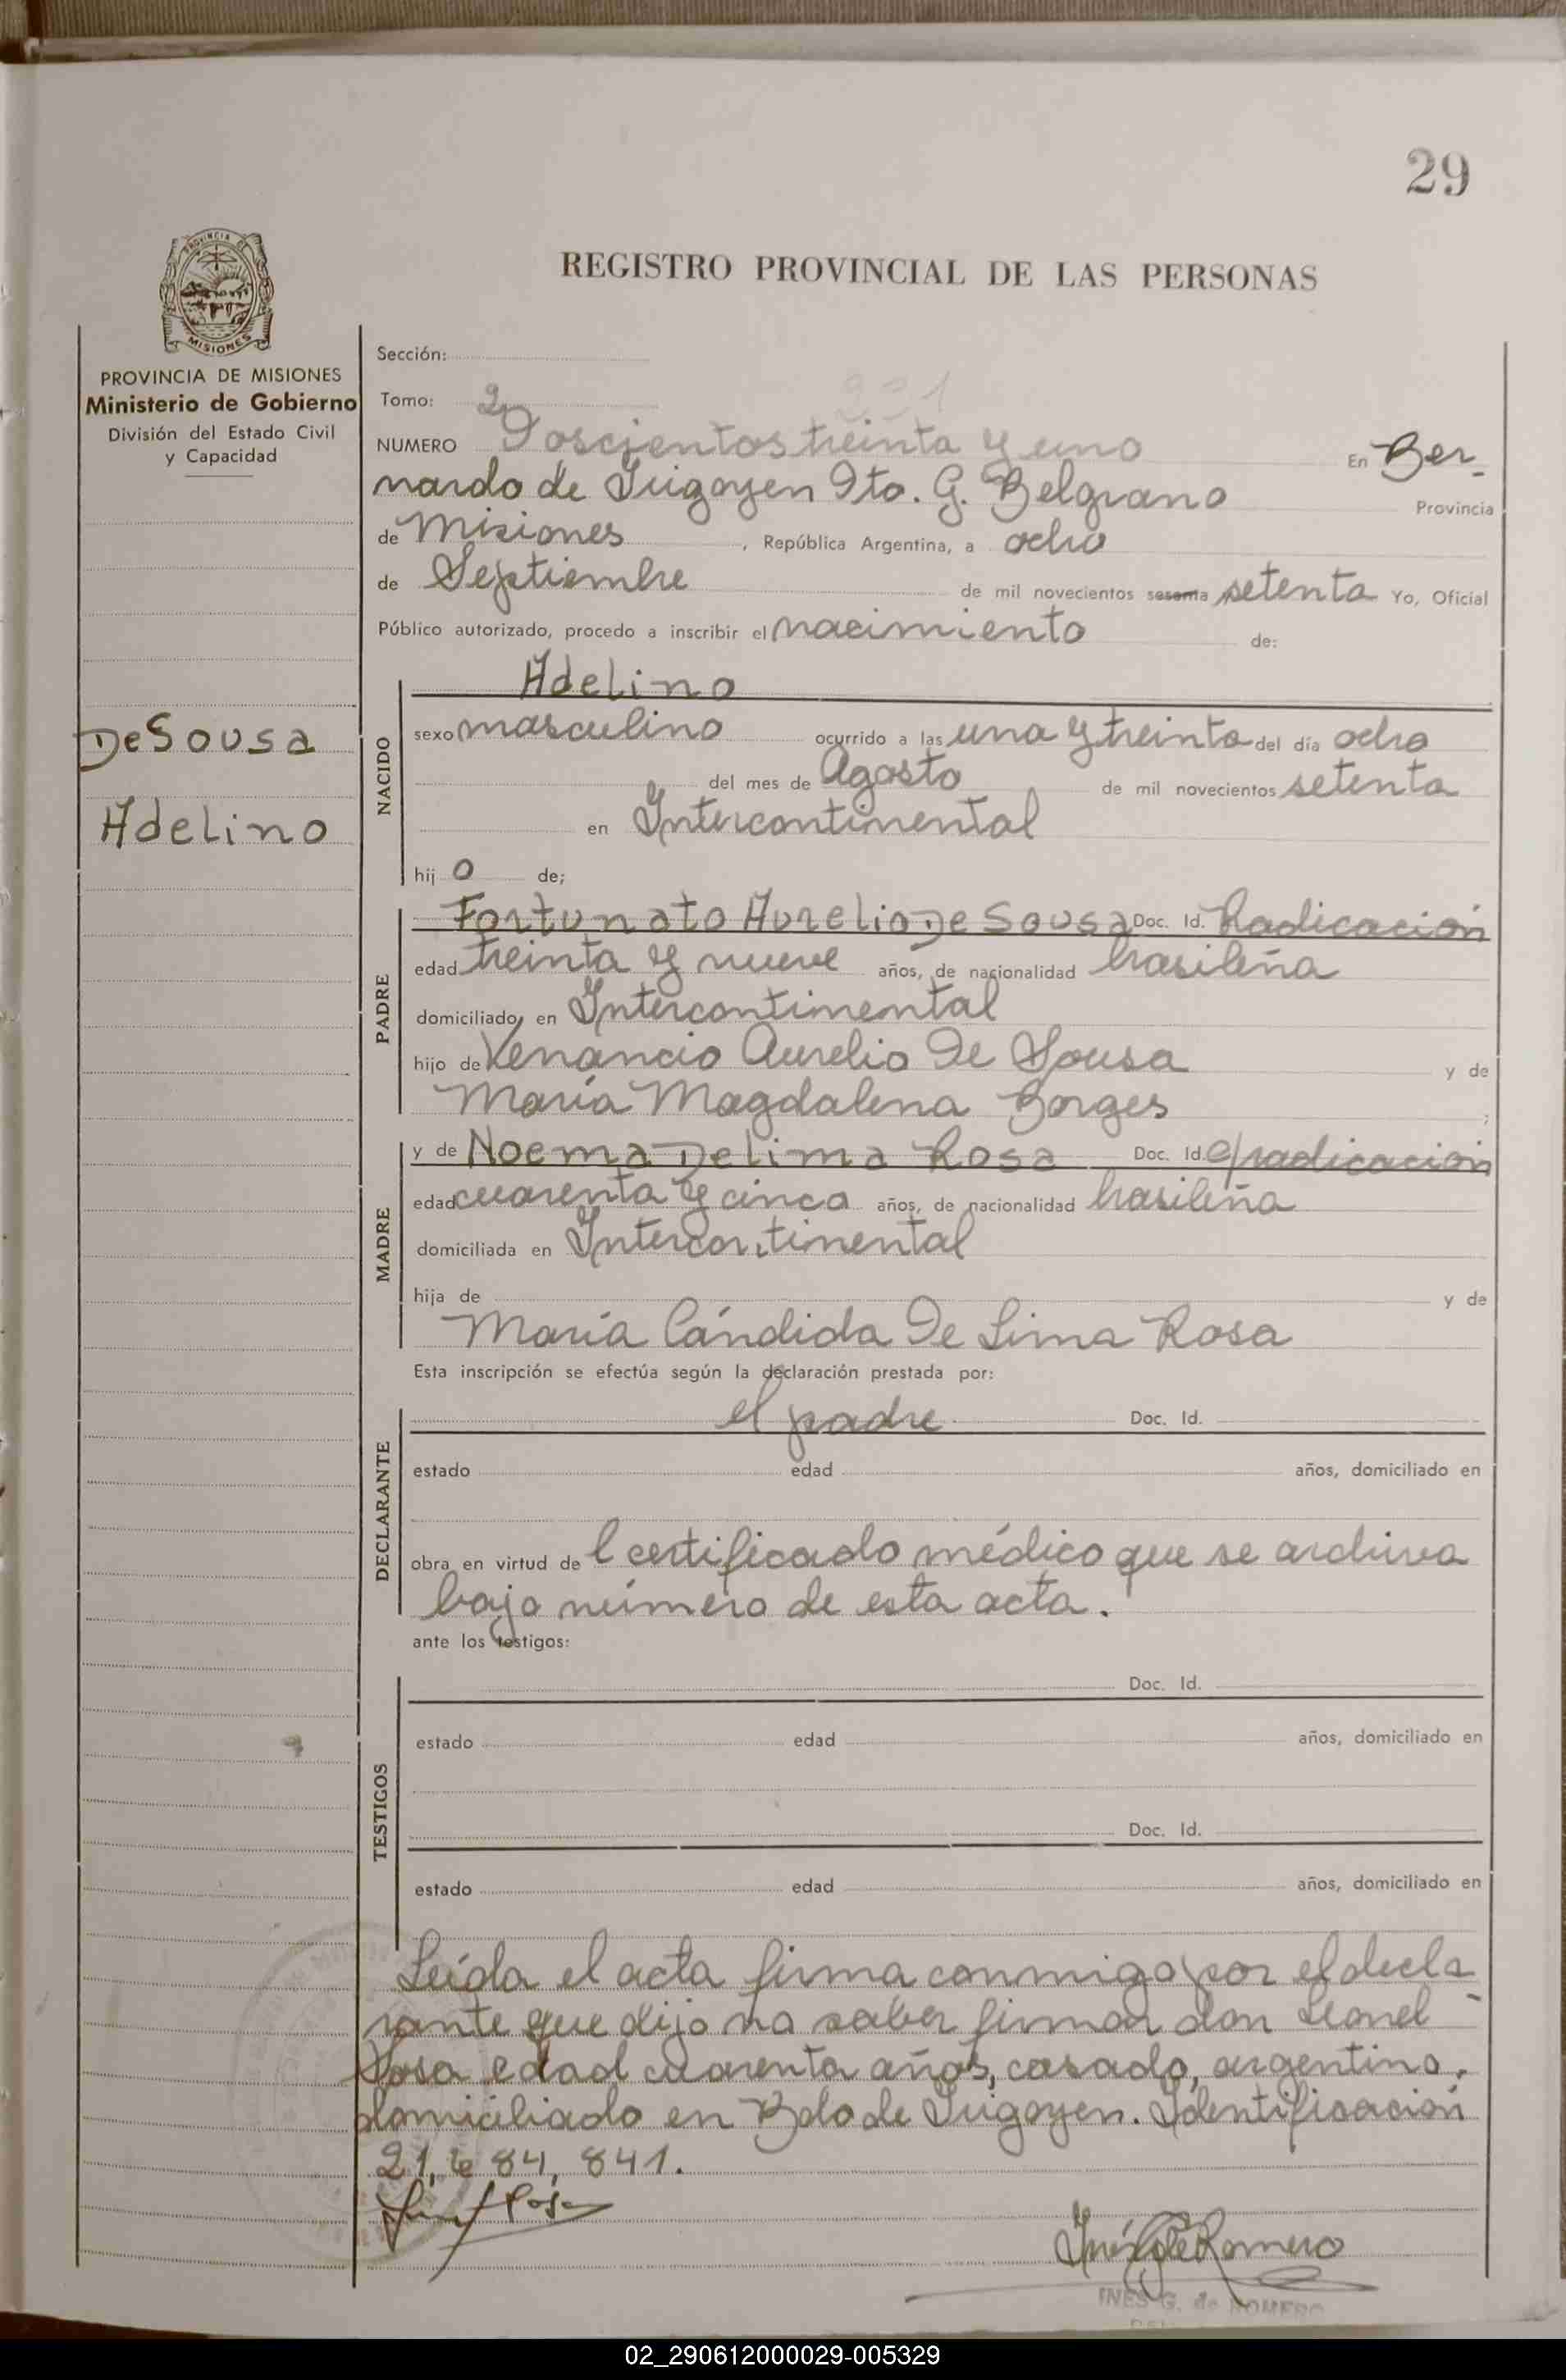 29
REGISTRO PROVINCIAL DE LAS PERSONAS
PROVINCIA DE MISIONES
Ministerio de Gobierno
División del Estado Civil
y Capacidad
De Sousa
Adelino
Sección:
Tomo: 2
NUMERO Doscientos treinta y uno En Ber-
nardo de Irigoyen Dto. G. Belgrano Provincia
de Misiones, República Argentina, a ocho
de Septiembre de mil novecientos sesenta setenta Yo, Oficial
Público autorizado, procedo a inscribir el nacimiento de:
NACIDO
Adelino
sexo masculino ocurrido a las una y treinta del día ocho
del mes de Agosto de mil novecientos setenta
en Intercontinental
hijo de;
PADRE
Fortunato Aurelio De Sousa Doc. Id. Radicación
edad treinta y nueve años, de nacionalidad brasileña
domiciliado en Intercontinental
hijo de Venancio Aurelio De Sousa y de
María Magdalena Borges;
MADRE
y de Noema De Lima Rosa Doc. Id. radicación
edad cuarenta y cinco años, de nacionalidad brasileña
domiciliada en Intercontinental
hija de y de
María Cándida De Lima Rosa
Esta inscripción se efectúa según la declaración prestada por:
DECLARANTE
el padre Doc. Id.
estado edad años, domiciliado en
obra en virtud de l certificado médico que se archiva
bajo número de esta acta.
ante los testigos:
TESTIGOS
Doc. Id.
estado edad años, domiciliado en
Doc. Id.
estado edad años, domiciliado en
Leída el acta firma conmigo por el decla
rante que dijo no saber firmar don Leonel
Rosa edad cuarenta años, casado, argentino,
domiciliado en Bdo de Irigoyen. Identificación
84, 841.
Inés G de Romero
INES G. de ROMERO
02_290612000029-005329